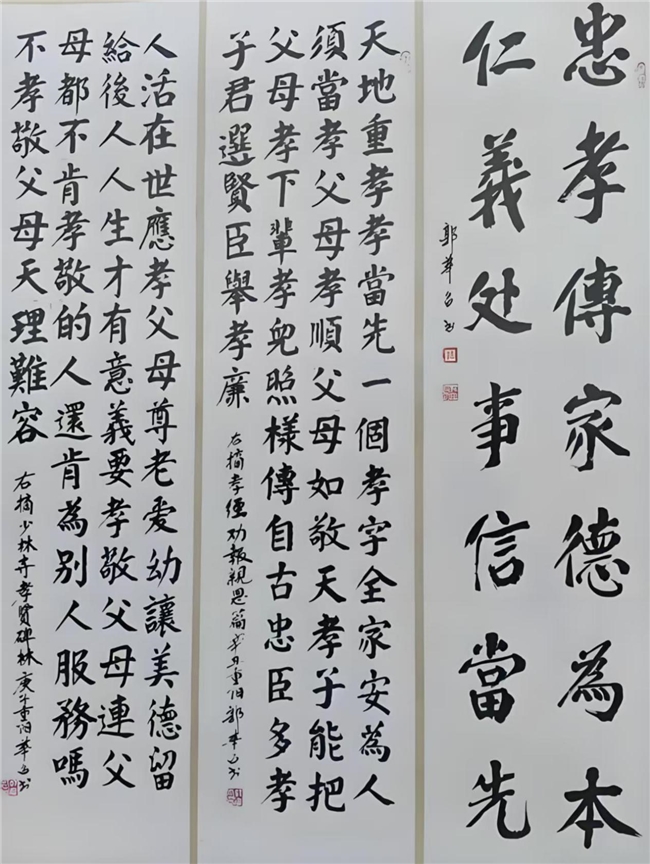 忠孝傳家德為本
仁義处事信當先
郭華书
天地重孝孝當先一個孝字全家安為人
須當孝父母孝順父母如敬天孝子能把
父母孝下輩孝兒照樣傳自古忠臣多孝
子君選賢臣舉孝廉
右摘孝經劝報親恩篇辛丑重阳郭華书
人活在世應孝父母尊老爱幼讓美德留
給後人人生才有意義要孝敬父母連父
母都不肯孝敬的人還肯為别人服務嗎
不孝敬父母天理難容
右摘少林寺孝賢碑林庚子重阳華书